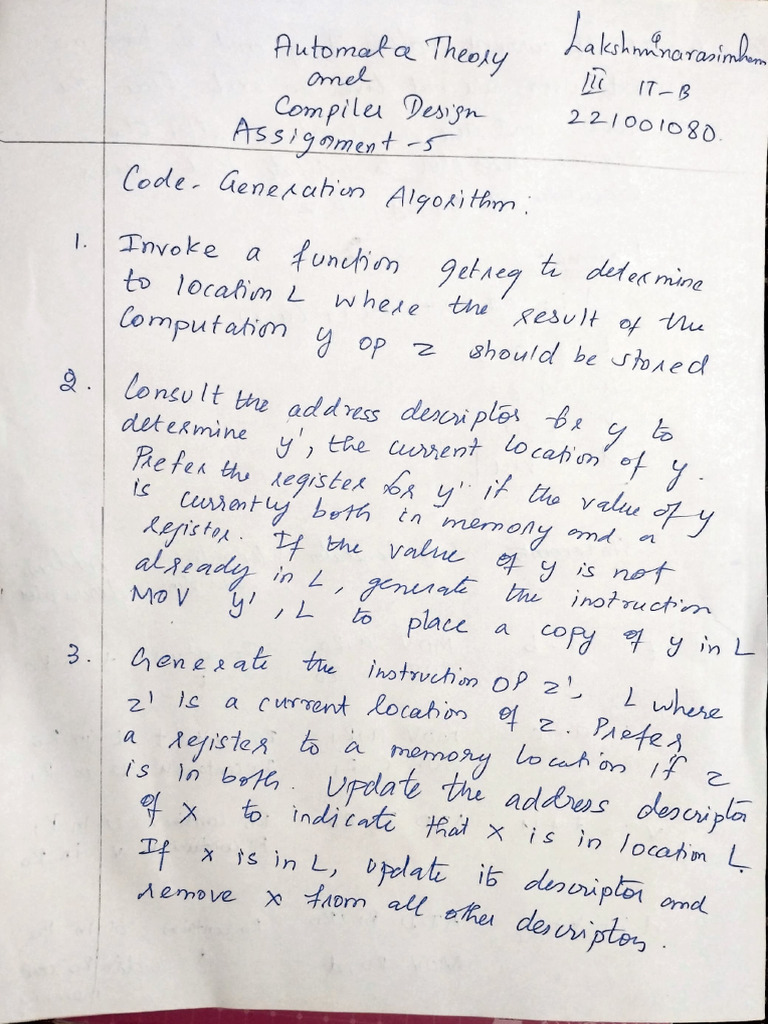 Automata Theory
and
Compiler Design
Assignment - 5
Lakshminarasimhan
III IT-B
221001080.
Code - Generation Algorithm:
1. Invoke a function getreg to determine
to location L where the result of the
Computation y op z should be stored
2. Consult the address descriptor for y to
determine y', the current location of y.
Prefer the register for y' if the value of y
is currently both in memory and a
register. If the value of y is not
already in L, generate the instruction
MOV y', L to place a copy of y in L
3. Generate the instruction OP z', L where
z' is a current location of z. Prefer
a register to a memory location if z
is in both. Update the address descriptor
of x to indicate that x is in location L.
If x is in L, update its descriptor and
remove x from all other descriptors.